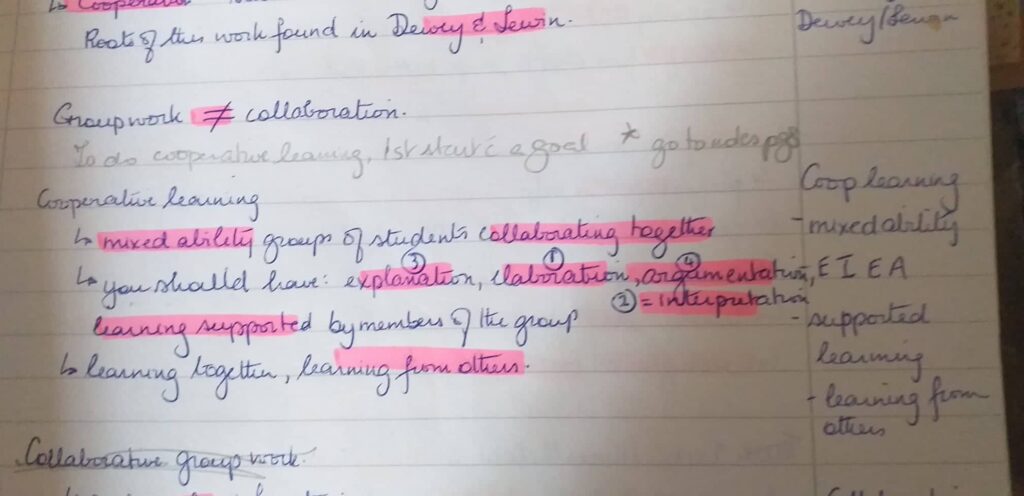 ↳ Cooperative
Roots of this work found in Dewey & Lewin.
Dewey/Lewin
Groupwork ≠ collaboration.
To do cooperative learning, 1st start c̄ a goal * go to notes pg8
Cooperative learning
↳ mixed ability groups of students collaborating together
↳ you should have: explanation, elaboration, argumentation, E I E A
③ ① ④
② = interpretation
learning supported by members of the group
↳ learning together, learning from others.
Coop learning
- mixed ability
- supported
learning
- learning from
others
Collaborative group work.